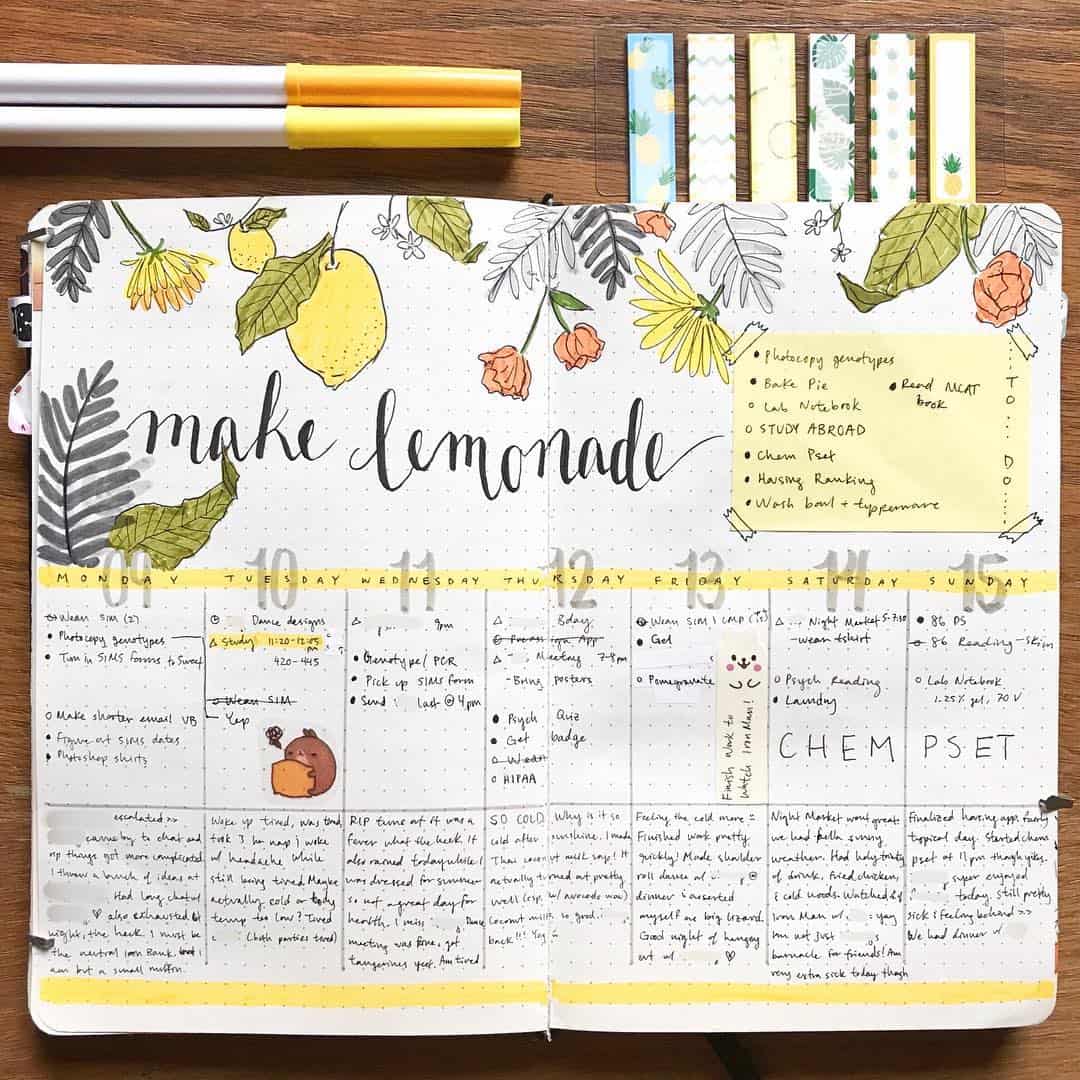 make lemonade
• Photocopy genotypes
• Bake Pie
• Read MCAT
book
○ Lab Notebook
○ STUDY ABROAD
• Chem Pset
• Housing Ranking
• Wash bowl +
TO DO
09 10 11 12 13 14 15
MONDAY TUESDAY WEDNESDAY THURSDAY FRIDAY SATURDAY SUNDAY
Wean SIM (2)
• Photocopy genotypes
• Turn in SIMS forms to
○ Make shorter email VB
• Figure out SIMS dates
• Photoshop shirts
escalated >>
came by to chat and
up things got more complicated.
I threw a bunch of ideas at
Had long chat w/
♡ also exhausted by
night, the heck. I must be
the neutral Iron Bank, but I
am but a small muffin.
Dance designs
△ Study 11:20-12:05
pm
420-445
○ Wean SIM
Yep
Woke up tired, was tired
took 3 hr nap; woke
w/ headache while
still being tired. Maybe
actually cold or body
temp too low? Tired
(both parties tired)
△ 9pm
• Genotype/PCR
• Pick up SIMS form
• Send: last @ 4pm
RIP turns out it was a
fever what the heck. It
also rained today while I
was dressed for summer
so not a great day for
health. I miss Dance
meeting was fine, got
tangerines yeet. Am tired
△ Bday
○ Process sign App
△ Meeting 7-8pm
-Bring posters
• Psych Quiz
• Get badge
○ Wean
○ HIPAA
SO COLD. Why is it so
cold after sunshine. I made
Thai coconut milk! It
actually turned out pretty
well (esp. w/ avocado
Coconut milk so good.
back!!! Yay
Wean SIM 1 CMP
• Get
• Pomegranate
Finish Work to
Watch Iron Man!
Feeling the cold more
Finished work pretty
quickly! Made shoulder
roll dance w/ @
dinner; asserted
myself as big lizard.
Good night of hangry
w/ ♡
△ Night Market 5-7:30
-wear tshirt
○ Psych Reading
• Laundry
CHEM PSET
Night Market went great
we had hella sunny
weather. Had
of drink, fried chicken,
& cold noods. Watched
Iron Man w/ yay
I'm not just
barnacle for friends! Am
very extra sick today though
• 86 PS
86 Reading -skim
○ Lab Notebook
1.25% gel, 70 V
Finalized housing app. Fairly
typical day. Started chem
pset at 11 pm though yikes.
super enjoyed
today. Still pretty
sick & feeling behind >>
We had dinner w/